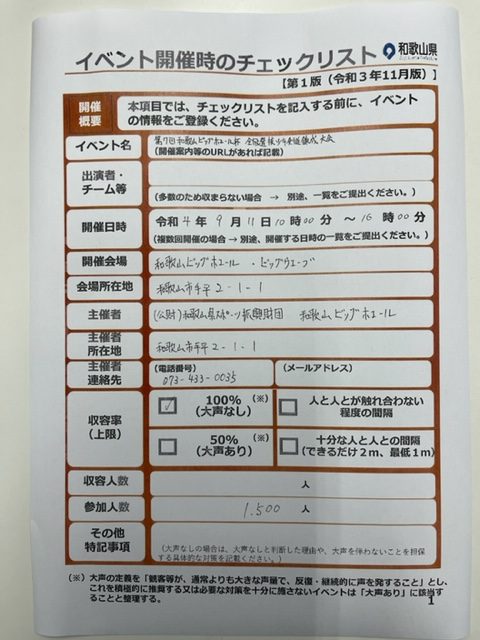 イベント開催時のチェックリスト
和歌山県
【第1版（令和3年11月版）】
開催概要
本項目では、チェックリストを記入する前に、イベント
の情報をご登録ください。
イベント名
第7回和歌山ビッグホエール杯
大会
（開催案内等のURLがあれば記載）
出演者・
チーム等
（多数のため収まらない場合 → 別途、一覧をご提出ください。）
開催日時
令和 4 年 9 月 11 日 10 時 00 分 ～ 16 時 00 分
（複数回開催の場合 → 別途、開催する日時の一覧をご提出ください。）
開催会場
和歌山ビッグホエール ・ ビッグウエーブ
会場所在地
和歌山市手平 2 - 1 - 1
主催者
(公財)和歌山県スポーツ振興財団 和歌山ビッグホエール
主催者
所在地
和歌山市手平 2 - 1 - 1
主催者
連絡先
（電話番号）
073-433-0035
（メールアドレス）
収容率
（上限）
100% （※）
（大声なし）
人と人とが触れ合わない
程度の間隔
50% （※）
（大声あり）
十分な人と人との間隔
（できるだけ2m、最低1m）
収容人数
人
参加人数
1.500 人
その他
特記事項
（大声なしの場合は、大声なしと判断した理由や、大声を伴わないことを担保
する具体的な対策を記載ください。）
（※）大声の定義を「観客等が、通常よりも大きな声量で、反復・継続的に声を発すること」とし、
これを積極的に推奨する又は必要な対策を十分に施さないイベントは「大声あり」に該当す
ることと整理する。
1